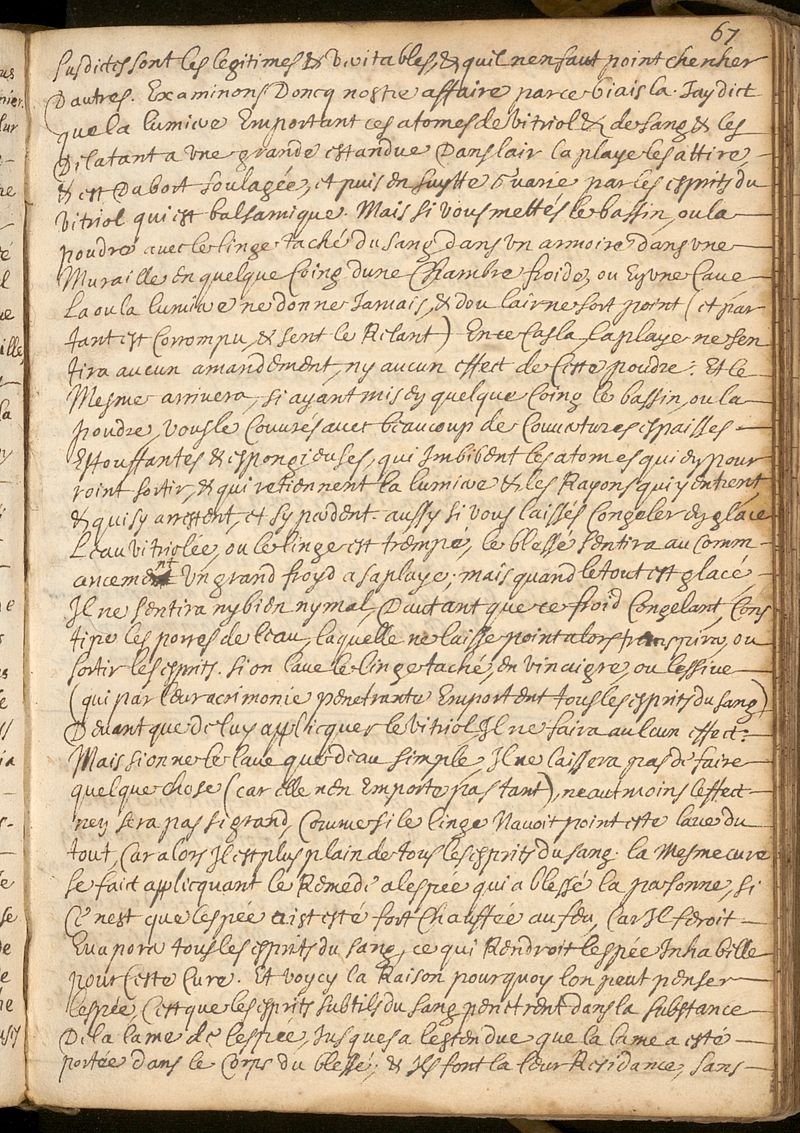 67
susdictes sont les legitimes & veritables, & quil nen faut point chercher
Dautres. Examinons Doncq nostre affaire par ce biais la. Jay dict
que la lumiere Emportant ces atomes de vitriol & de sang & les
Dilatant a vne grande estandue Dans lair la playe les attire,
& est Dabort soulagée, et puis en suytte Guarie par les esprits du
vitriol qui est balsamique. Mais si vous mettés le bassin, ou la
poudre avec le linge taché Du sang dans vn armoire dans vne
Muraille en quelque Coing dune Chambre froide, ou En vne Cave
La ou la lumiere ne donne Jamais, & dou lair ne sort point (et par
tant est Corrompu, & sent le Relant) En ce Cas la, la playe ne sen
tira aucun amandement, ny aucun effect de Cette poudre: Et le
Mesme arrivera, si ayant mis en quelque Coing le bassin, ou la
poudre, vous le Couvrés avec beaucoup de Couvertures espaisses
Estouffantes & espongieuses, qui Imbibent les atomes qui en pour
roint sortir, & qui retiennent la lumiere & les Rayons qui y entrent
& qui sy arrestent, et sy perdent. aussy si vous laissés Congeler en glace
Leau vitriolée, ou le linge est trempé, le blessé sentira au Comm-
ancement Vn grand froyd a sa playe; mais quand le tout est glacé
Il ne sentira ny bien ny mal, Dautant que ce froid Congelant Cons
tipe les porres de leau, laquelle ne laisse point alors transpirer, ou
sortir les esprits. si on lave le linge taché, en vinaigre, ou lessive
(qui par leur acrimonie penetrante Emportent tous les esprits du sang)
Devant que de luy applicquer le vitriol Il ne faira aulcun effect:
Mais si on ne le lave que deau simple, Il ne laissera pas de faire
quelque chose (car elle nen Emporte pas tant), neautmoins leffect
ney sera pas si grand, Comme si le linge Navoit point este lavé du
tout, Car alors Il est plus plain de tous les esprits du sang. la Mesme cure
se faict applicquant le Remede a lespée qui a blessé la personne, si
Ce nest que lespée aist esté fort Chauffée au feu, Car Il feroit
Evaporer tous les esprits du sang, ce qui Rendroit lespée Inhabille
pour Ceste Cure. Et voycy la Raison pourquoy lon peut penser
lespée, Cest que les esprits subtils du sang penetrent dans la substance
De la lame de lespee, Jusques a lestendue que la lame a esté
portée dans le Corps du blessé; & Ils font la leur Residance, sans